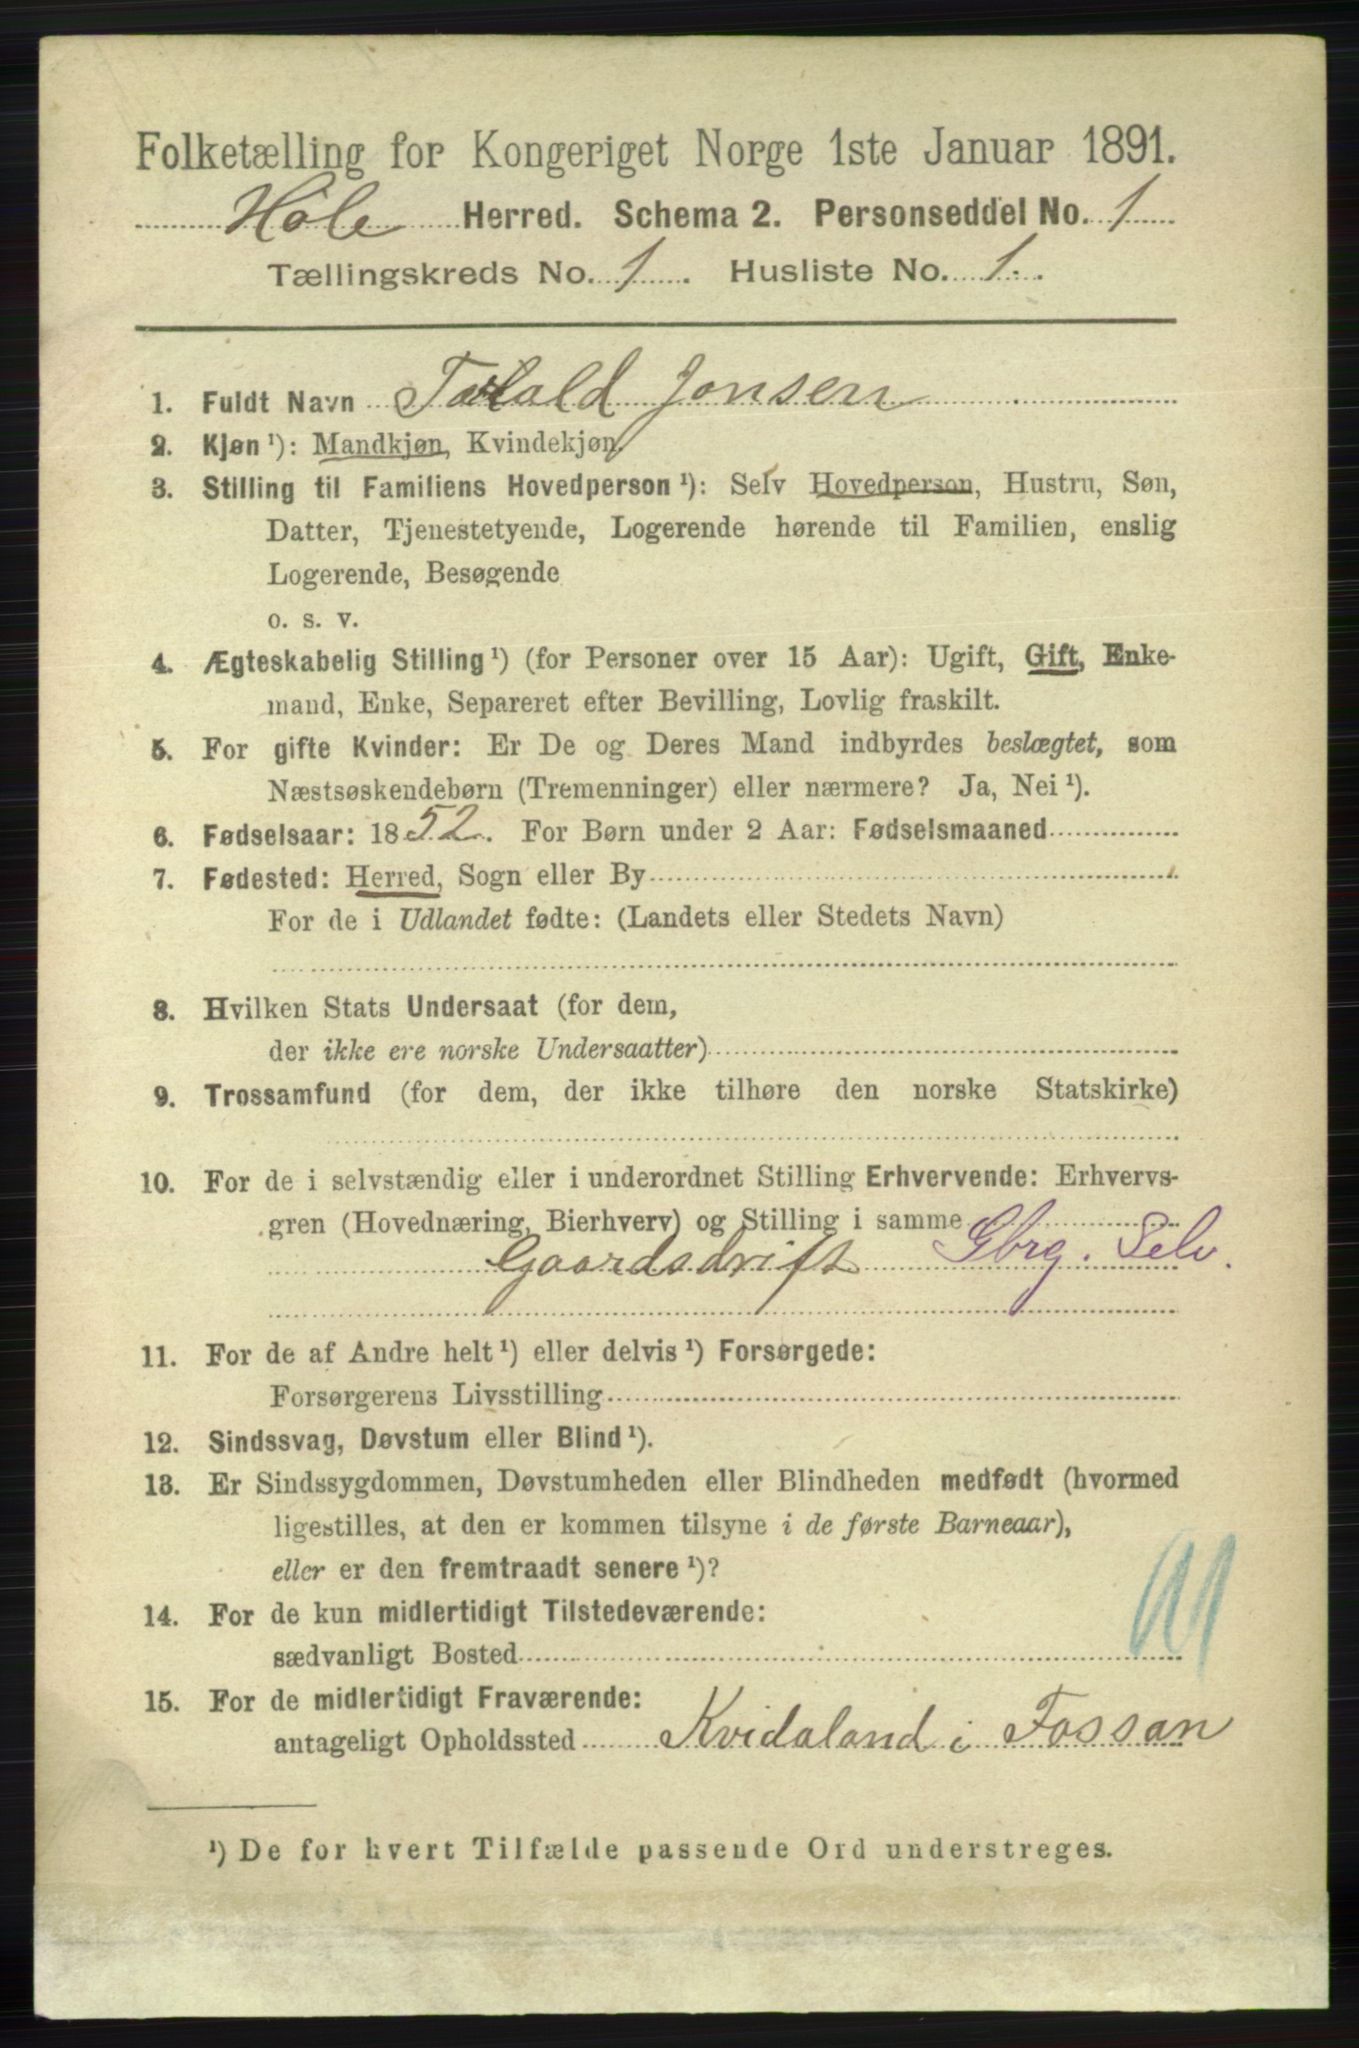 Folketælling for Kongeriget Norge 1ste Januar 1891.
Høle Herred. Schema 2. Personseddel No. 1
Tællingskreds No. 1. Husliste No. 1.
1. Fuldt Navn Torald Jonsen
2. Kjøn ¹): Mandkjøn, Kvindekjøn
3. Stilling til Familiens Hovedperson ¹): Selv Hovedperson, Hustru, Søn,
Datter, Tjenestetyende, Logerende hørende til Familien, enslig
Logerende, Besøgende
o. s. v.
4. Ægteskabelig Stilling ¹) (for Personer over 15 Aar): Ugift, Gift, Enke-
mand, Enke, Separeret efter Bevilling, Lovlig fraskilt.
5. For gifte Kvinder: Er De og Deres Mand indbyrdes beslægtet, som
Næstsøskendebørn (Tremenninger) eller nærmere? Ja, Nei ¹).
6. Fødselsaar: 1852. For Børn under 2 Aar: Fødselsmaaned
7. Fødested: Herred, Sogn eller By
For de i Udlandet fødte: (Landets eller Stedets Navn)
8. Hvilken Stats Undersaat (for dem,
der ikke ere norske Undersaatter)
9. Trossamfund (for dem, der ikke tilhøre den norske Statskirke)
10. For de i selvstændig eller i underordnet Stilling Erhvervende: Erhvervs-
gren (Hovednæring, Bierhverv) og Stilling i samme
Gaardsdrift Gbrg. Selv.
11. For de af Andre helt ¹) eller delvis ¹) Forsørgede:
Forsørgerens Livsstilling
12. Sindssvag, Døvstum eller Blind ¹).
13. Er Sindssygdommen, Døvstumheden eller Blindheden medfødt (hvormed
ligestilles, at den er kommen tilsyne i de første Barneaar),
eller er den fremtraadt senere ¹)?
14. For de kun midlertidigt Tilstedeværende:
sædvanligt Bosted
15. For de midlertidigt Fraværende:
antageligt Opholdssted Kvidaland i Fossan
¹) De for hvert Tilfælde passende Ord understreges.